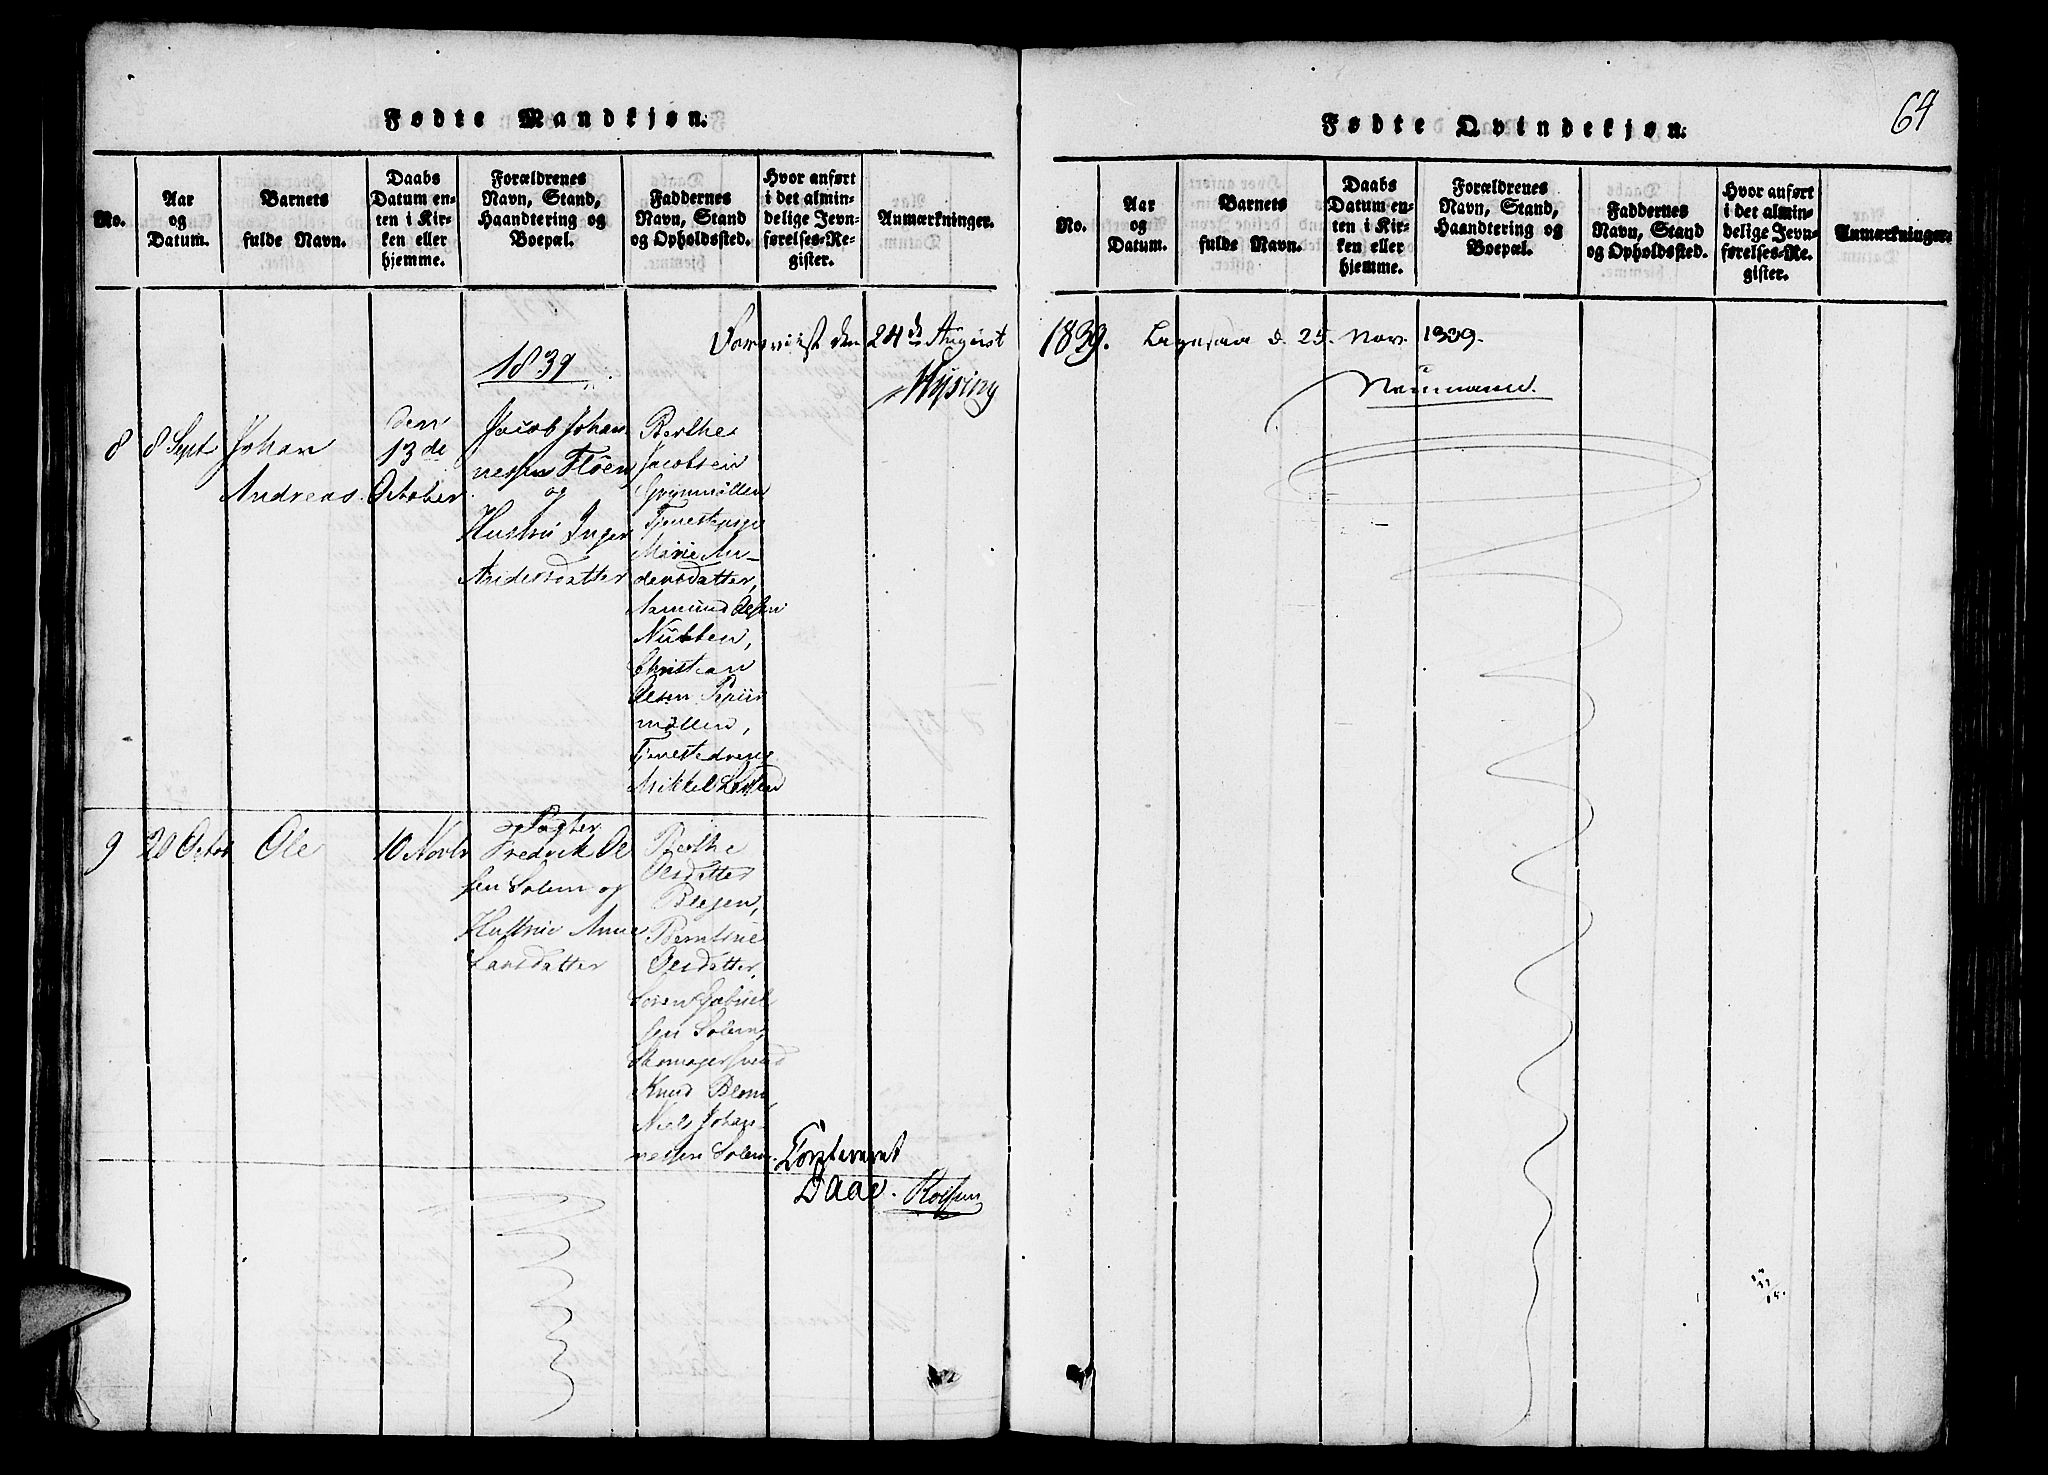 Fødte Mandkjøn.
No.
Aar
og
Datum.
Barnets
fulde Navn.
Daabs
Datum en-
ten i Kir-
ken eller
hjemme.
Forældrenes
Navn, Stand,
Haandtering og
Boepæl.
Faddernes
Navn, Stand
og Opholdssted.
Hvor anført
i det almin-
delige Jevn-
førelses-Re-
gister.
Anmærkninger.
den 24de August
1839
8
8 Sept
Johan
Andreas
den
13de
October
Jacob Johan
nessen Floen
og
Hustrue Inger
Andersdatter
Berthe
Jacobsen
Tjenestepige
Marie An-
dersdatter,
Aamund Olsen
Nubben,
Christian
Olsen
møllen,
Tjenestedreng
Mikkel
9
20 Octob
Ole
10 Novbr
Fredrik Ol
sen Solem og
Hustrue Anne
Larsdatter
Berthe
Olsdatter
Bergen,
Berntine
Olsdatter,
Søren Gabriel
sen Solem,
Skomagersvend
Knud Blom
Niels Johan-
nessen Solem.
Daae. Rolfsen
Fødte Qvindekjøn.
64
No.
Aar
og
Datum.
Barnets
fulde Navn.
Daabs
Datum en-
ten i Kir-
ken eller
hjemme.
Forældrenes
Navn, Stand,
Haandtering og
Boepæl.
Faddernes
Navn, Stand
og Opholdssted.
Hvor anført
i det almin-
delige Jevn-
førelses-Re-
gister.
Anmærkninger.
1839. d. 25. Nov. 1839.
Neumann.